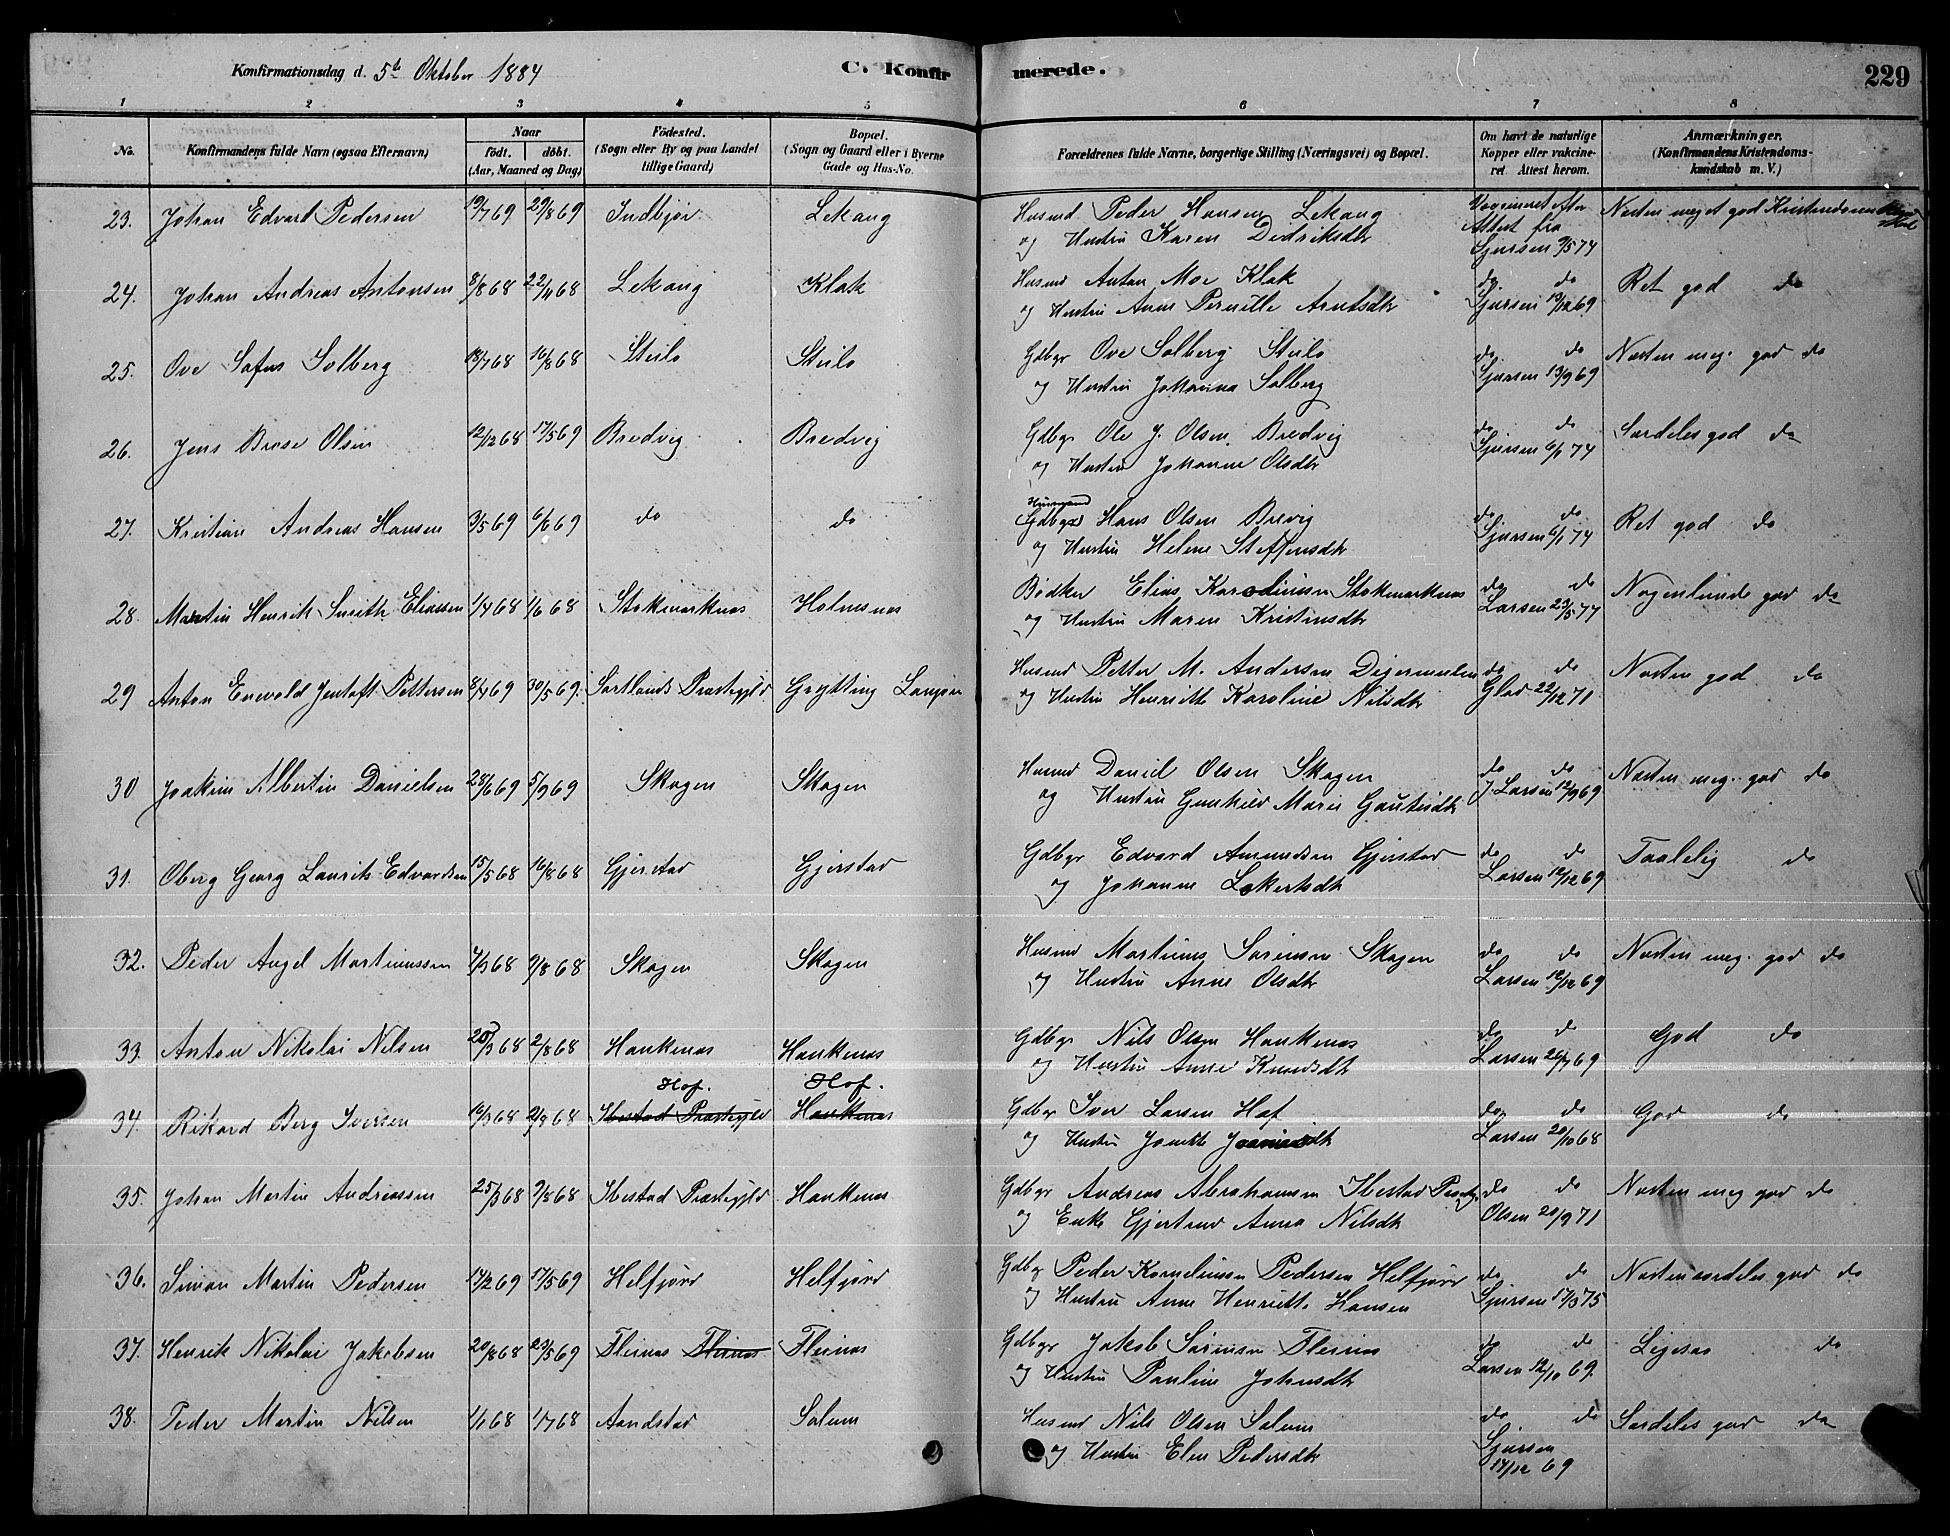 Konfirmationsdag d. 5te Oktober 1884
C. Konfirmerede.
229
1 2 3 4 5 6 7 8
No.
Konfirmandens fulde Navn (ogsaa Efternavn)
Naar
födt. döbt.
(Aar, Maaned og Dag)
Födested.
(Sogn eller By og paa Landet
tillige Gaard)
Bopæl.
(Sogn og Gaard eller i Byerne
Gade og Hus-No.
Forældrenes fulde Navne, borgerlige Stilling (Næringsvei) og Bopæl.
Om havt de naturlige
Kopper eller vakcine-
ret. Attest herom.
Anmærkninger.
(Konfirmandens Kristendoms-
kundskab m. V.)
23. Johan Edvart Pedersen 19/7 69 29/8 69 Indbjor Lekang Husmd Peder Hansen Lekang
og Hustru Karen Dedriksdtr
Vaccineret efter
Attest fra
Sjursen 9/5 74
Næsten meget god Kristendoms
24. Johan Andreas Antonsen 8/8 68 22/11 68 Lekang Klak Husmd Anton Moe Klak
og Hustru Anne Pernille Arntsdtr
do do
Sjursen 13/12 69
Ret god do
25. Ove Sofus Solberg 18/7 68 16/8 68 Steilo Steilo Gdbgr Ove Solberg Steilo
og Hustru Johanna Solberg
do do
Sjursen 13/9 69
Næsten meg. god do
26. Jens Brose Olsen 12/12 68 17/5 69 Bredvig Bredvig Gdbgr Ole J. Olsen Bredvig
og Hustru Johanne Olsdtr
do do
Sjursen 6/1 74
Særdeles god do
27. Kristian Andreas Hansen 3/5 69 6/6 69 do do Husmand
Gdbgr Hans Olsen Brevig
og Hustru Helene Steffensdtr
do do
Sjursen 6/1 74
Ret god do
28. Martin Henrik Smith Eliassen 1/4 68 1/6 68 Stokmarknes Holmsnes Bødker Elias Karolinsen Stokmarknes
og Hustru Maren Kristinsdtr
do do
Larsen 23/5 77
Nogenlunde god do
29 Anton Enevold Jentoft Pettersen 8/4 69 30/5 69. Sortlands Præstegjld Grytting Husmd Petter M. Andersen Digermulen
og Hustru Henriette Karoline Nilsdtr
do do
Glad 22/12 71
Næsten god do
30 Joakim Albertin Danielsen 28/6 69 5/9 69 Skagen Skagen Husmd Daniel Olsen Skagen
og Hustru Gunhild Marie
do do
J. Larsen 12/9 69
Næsten meg. god do
31. Oberg Georg Laurits Edvardsen 15/5 68 16/8 68 Gjerstad Gjerstad Gdbgr Edvard Amundsen Gjerstad
og Johanne
do do
Larsen 12/12 69
Taalelig do
32. Peder Angel Martinussen 7/3 68 2/8 68 Skagen Skagen Husmd Martinus Sørensen Skagen
og Hustru Anne Olsdtr
do do
Larsen 12/12 69
Næsten meg. god do
33. Anton Nikolai Nilsen 3 68 2/8 68 Haukenes Haukenes Gdbgr Nils Olsen Haukenes
og Hustru Anne Knudsdtr
do do
Larsen 26/9 69
God do
Hof. Hof.
34. Rikard Berg Iversen 16/3 68 2/8 68 Ibestad Præstegjld Haukenes Gdbgr Iver Larsen Hof
og Hustru
do do
Larsen 20/10 68
God do
35. Johan Martin Andreassen 25/3 68 2/8 68 Ibestad Præstegjld Haukenes Gdbgr Andreas Abrahamsen Ibestad Præstgj.
og Enke Gjertrud Anna Nilsdtr
do do
Olsen 20/9 71
Næsten meg god do
36. Simon Martin Pedersen 14/2 69 17/5 69 Helfjord Helfjord Gdbg Peder Kornelinsen Pedersen Helfjord
og Hustru Anne Henriette Hansen
do do
Sjursen 17/5 75
Næsten særdeles god do
37. Henrik Nikolai Jakobsen 20/8 68 23/5 69 Fleines Fleines Fleines Gdbgr Jakob Sørensen Fleines
og Hustru Pauline Johnsdtr
do do
Larsen 12/10 69.
Ligesaa do
38. Peder Martin Nilsen 1/1 68 1/7 68 Aandstad Solum Husmd Nils Olsen Solum
og Hustru Elen Pedersdtr
do do
Sjursen
14/12 69
Særdeles god do